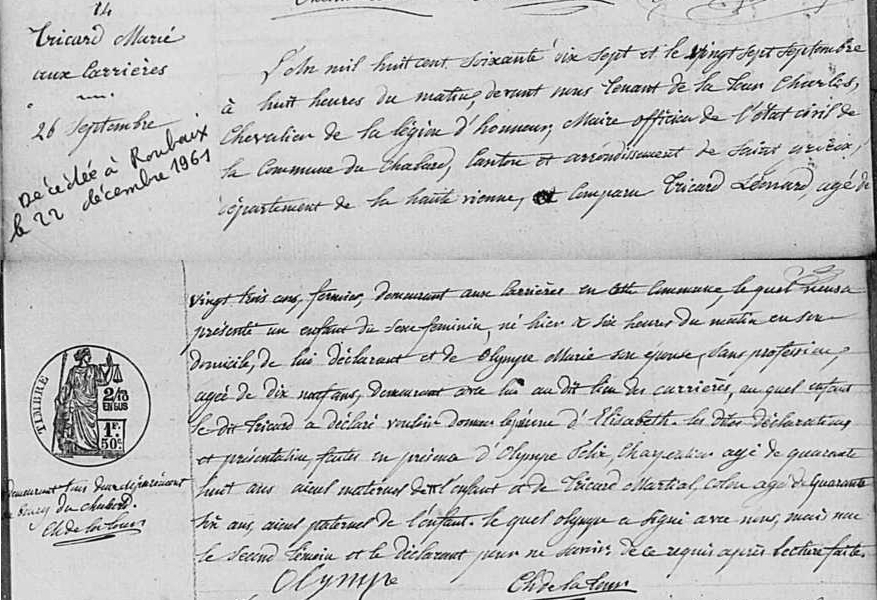 14
Tricard Marie
aux Carrières
26 Septembre
Décédée à Roubaix
le 22 décembre 1961
L'an mil huit cent soixante dix sept et le vingt sept septembre
à huit heures du matin, devant nous Tenant de la Tour Charles,
Chevalier de la légion d'honneur, Maire officier de l'état civil de
la Commune du Chalard, Canton et arrondissement de Saint Yrieix,
département de la haute vienne, est Comparu Tricard Léonard, agé de
vingt trois ans, fermier, demeurant aux Carrières en cette Commune, le quel nous a
présenté un enfant du sexe feminin, né hier à six heures du matin en son
domicile, de lui déclarant et de Olympe Marie son épouse, sans profession,
agée de dix neuf ans, demeurant avec lui au dit lieu des carrières, au quel enfant
le dit Tricard a déclaré vouloir donner le prénom d'Elisabeth. les dites déclarations
et présentation faites en présence d'Olympe Félix, Charpentier agé de quarante
huit ans aieul maternel de l'enfant et de Tricard Martial, Colon agé de Quarante
six ans, aieul paternel de l'enfant. le quel olympe a signé avec nous, mais non
le second témoin et le déclarant pour ne savoir de ce requis après lecture faite.
TIMBRE
2/10
EN SUS
1F.
50c.
demeurant tous deux séparément
au Bourg du chalard.
Ch de la Tour
Olympe
Ch de la Tour